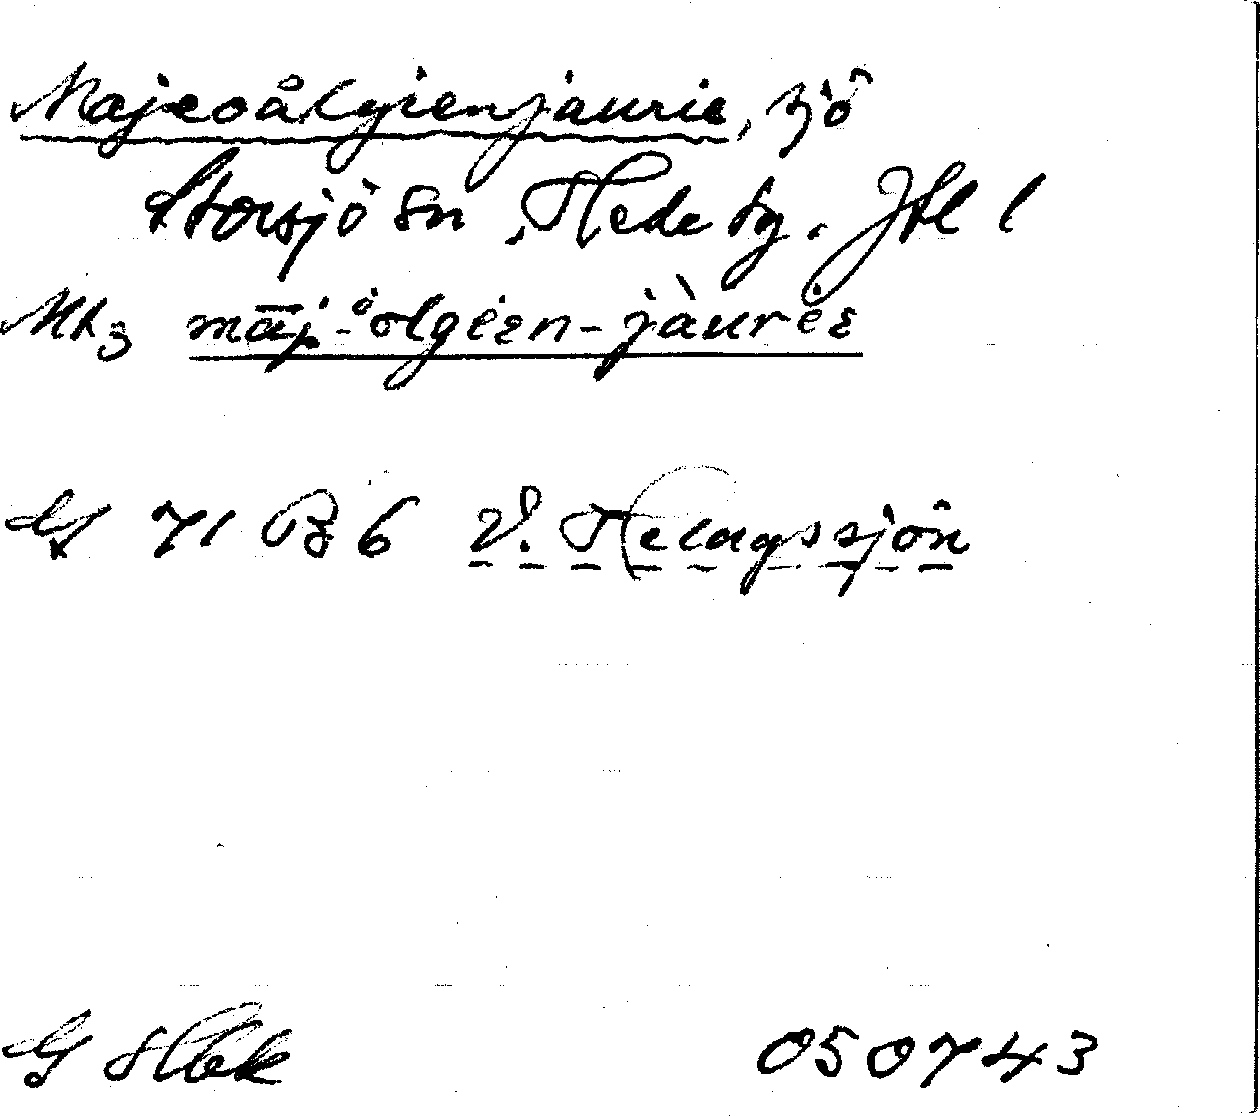 Majeoålgienjaurie, sjö
Storsjö sn, Hede tg. Jtl l
Mt3 māj-ålgien-jàuries
71 B 6 V. Helagssjön
050743